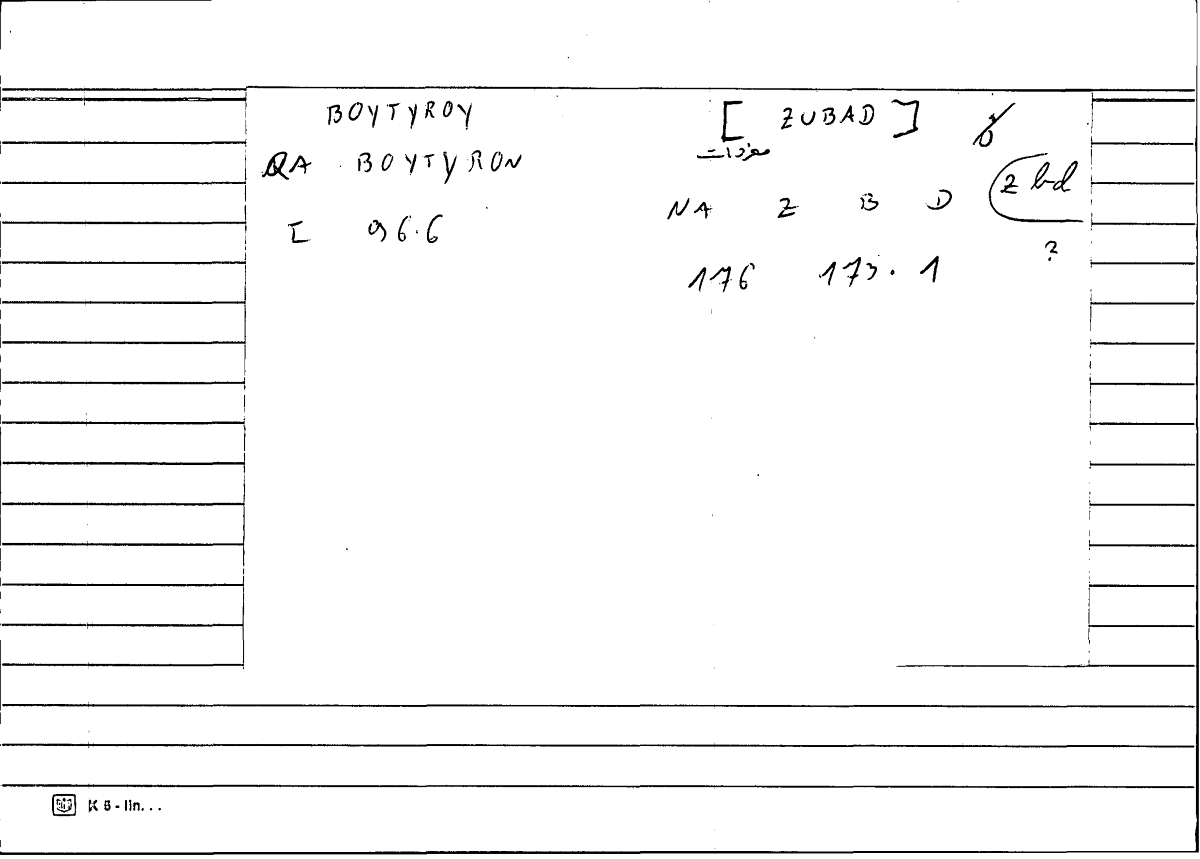 BOYTYROY [ ZUBAD ]
مفردات
QA BOYTYRON
NA Z B D z bd
I 96.6 ?
176 173.1
K 6 - lin...